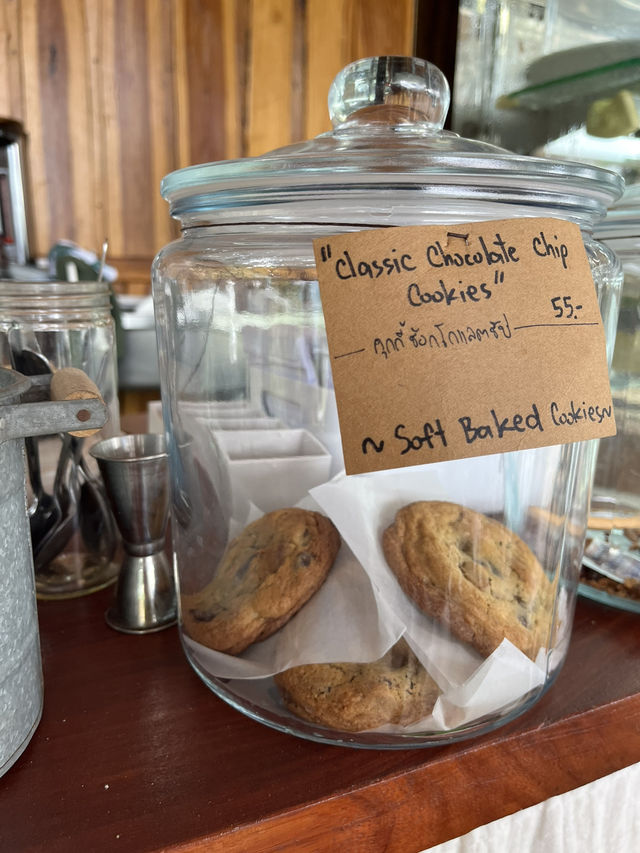 "Classic Chocolate Chip
Cookies"
55.-
คุกกี้ ช็อกโกแลตชิป
~ Soft Baked Cookies ~